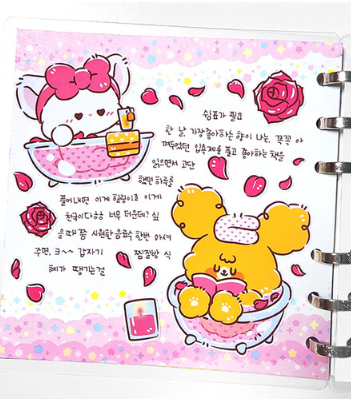 쉼표가 필요
한 날, 가장 좋아하는 향이 나는, 꾹꾹 아
껴두었던 입욕제를 풀고 좋아하는 책을
읽으면서 고단
했던 하루를
풀어내면 이게 힐링이고 이게
천국이다 하아 너무 더운데? 싶
을 때쯤 시원한 음료수 한번 마셔
주면, 크~~ 갑자기 찜질방 식
혜가 땡기는걸